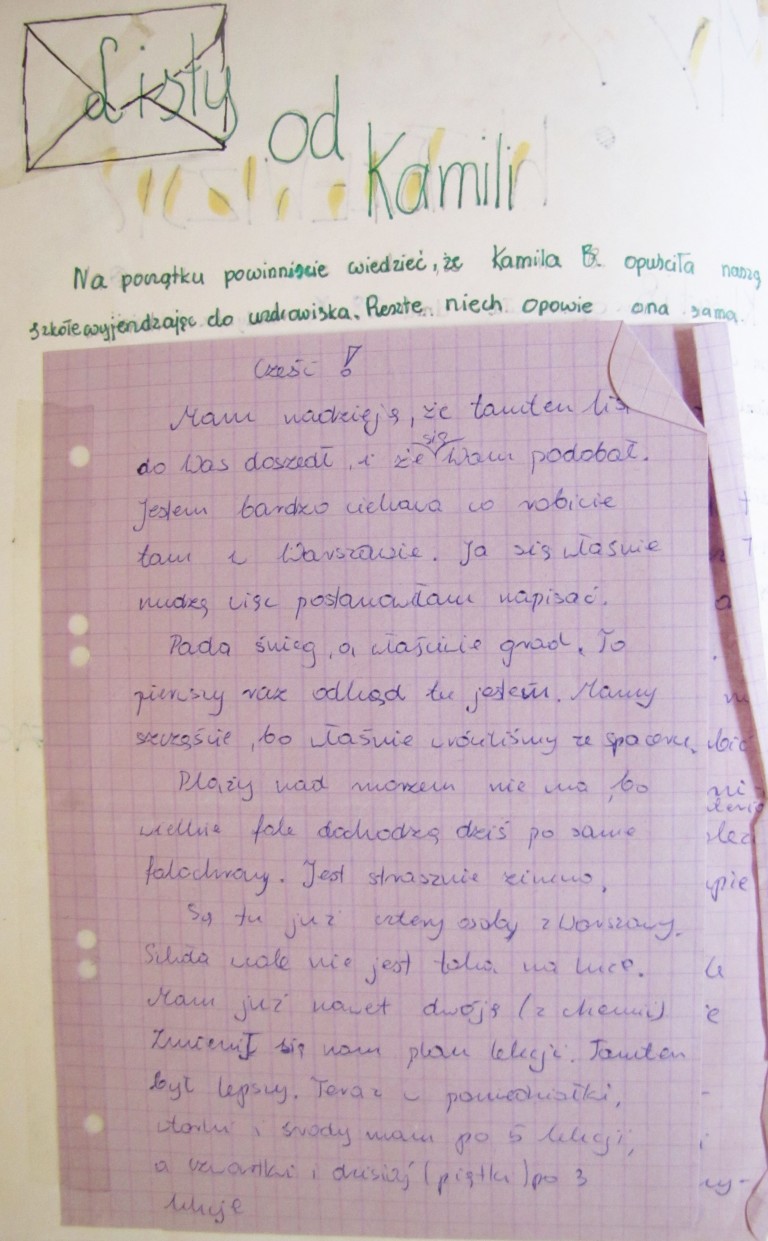 Listy
od
Kamili
Na początku powinniście wiedzieć, że Kamila B. opuściła naszą
szkołę wyjeżdzając do uzdrowiska. Resztę niech opowie ona sama.
Cześć!
Mam nadzieję, że tamten lis
do Was doszedł, i że się Wam podobał.
Jestem bardzo ciekawa co robicie
tam w Warszawie. Ja się właśnie
nudzę więc postanowiłam napisać.
Pada śnieg, a właściwie grad. To
pierwszy raz odkąd tu jestem. Mamy
szczęście, bo właśnie wróciliśmy ze spaceru.
Plaży nad morzem nie ma, bo
wielkie fale dochodzą dziś po same
falochrony. Jest strasznie zimno.
Są tu już cztery osoby z Warszawy.
Szkoła wcale nie jest taka na luce.
Mam już nawet dwóję (z chemii)
Zmienił się nam plan lekcji. Tamten
był lepszy. Teraz w poniedziałki,
wtorki i środy mam po 5 lekcji,
a czwartki i dzisiaj (piątki) po 3
lekcje